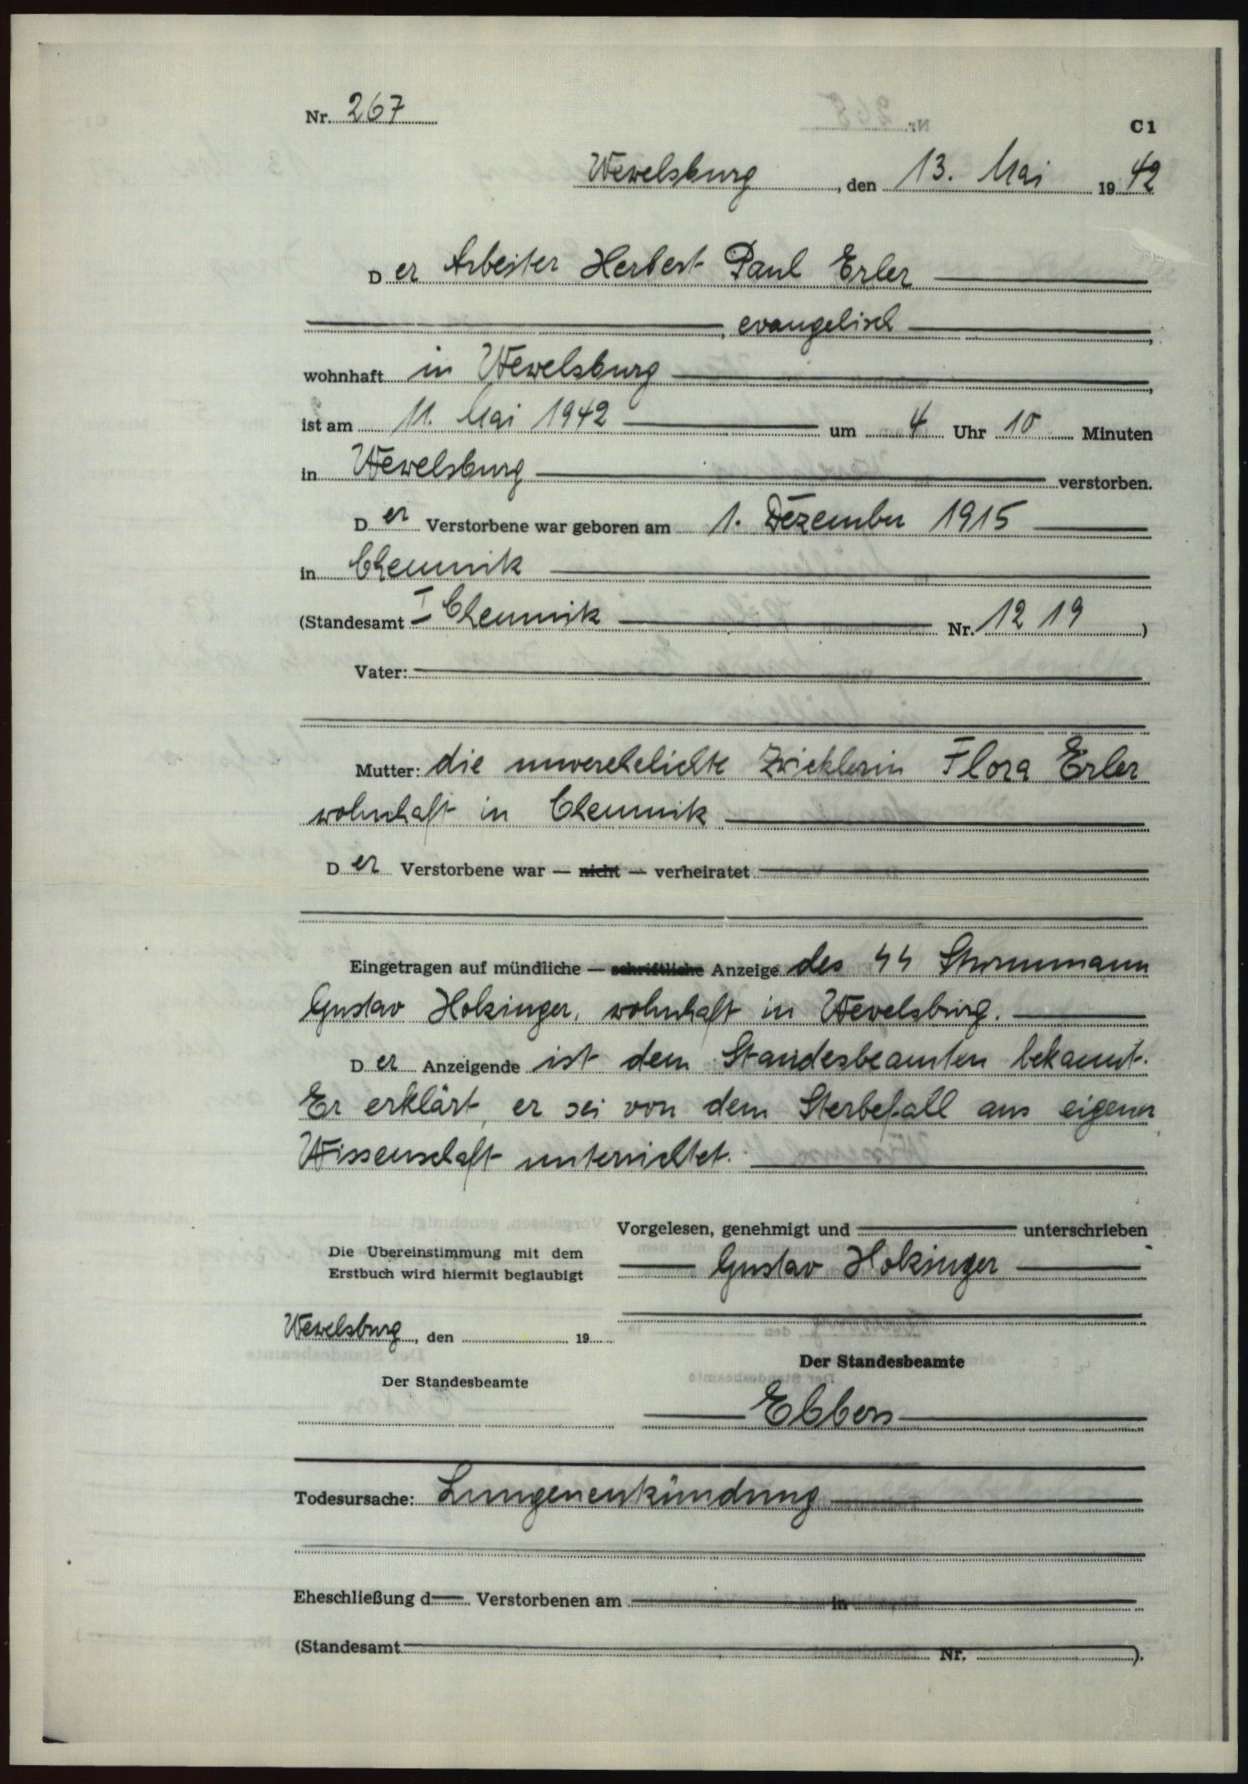 Nr. 267
C1
Wewelsburg, den 13. Mai 1942
Der Arbeiter Herbert Paul Erler
, evangelisch,
wohnhaft in Wewelsburg,
ist am 11. Mai 1942 um 4 Uhr 10 Minuten
in Wewelsburg verstorben.
Der Verstorbene war geboren am 1. Dezember 1915
in Chemnitz
(Standesamt I Chemnitz Nr. 1219)
Vater:
Mutter: die unverehelichte Zwicklerin Flora Erler
wohnhaft in Chemnitz
Der Verstorbene war — nicht — verheiratet
Eingetragen auf mündliche — schriftliche Anzeige des SS Sturmmann
Gustav Holzinger, wohnhaft in Wewelsburg.
Der Anzeigende ist dem Standesbeamten bekannt.
Er erklärt, er sei von dem Sterbefall aus eigener
Wissenschaft unterrichtet.
Vorgelesen, genehmigt und unterschrieben
Die Übereinstimmung mit dem
Erstbuch wird hiermit beglaubigt
Gustav Holzinger
Wewelsburg, den 19
Der Standesbeamte
Der Standesbeamte
Ebbers
Todesursache: Lungenentzündung
Eheschließung d Verstorbenen am in
(Standesamt Nr. ).